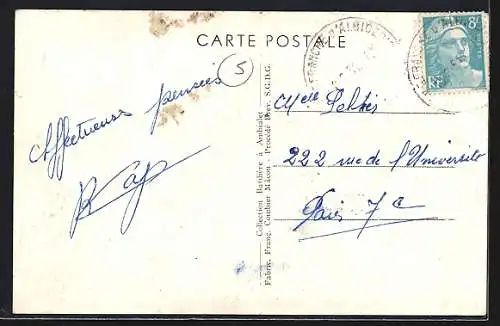 CARTE POSTALE
5
Affectueuses pensées
Collection Barthère à Ambialet
Fabric. Franç. Combier Mâcon - Procédé Dép. S.G.D.G.
Melle
222 rue de l'Université
Paris 7e
8F